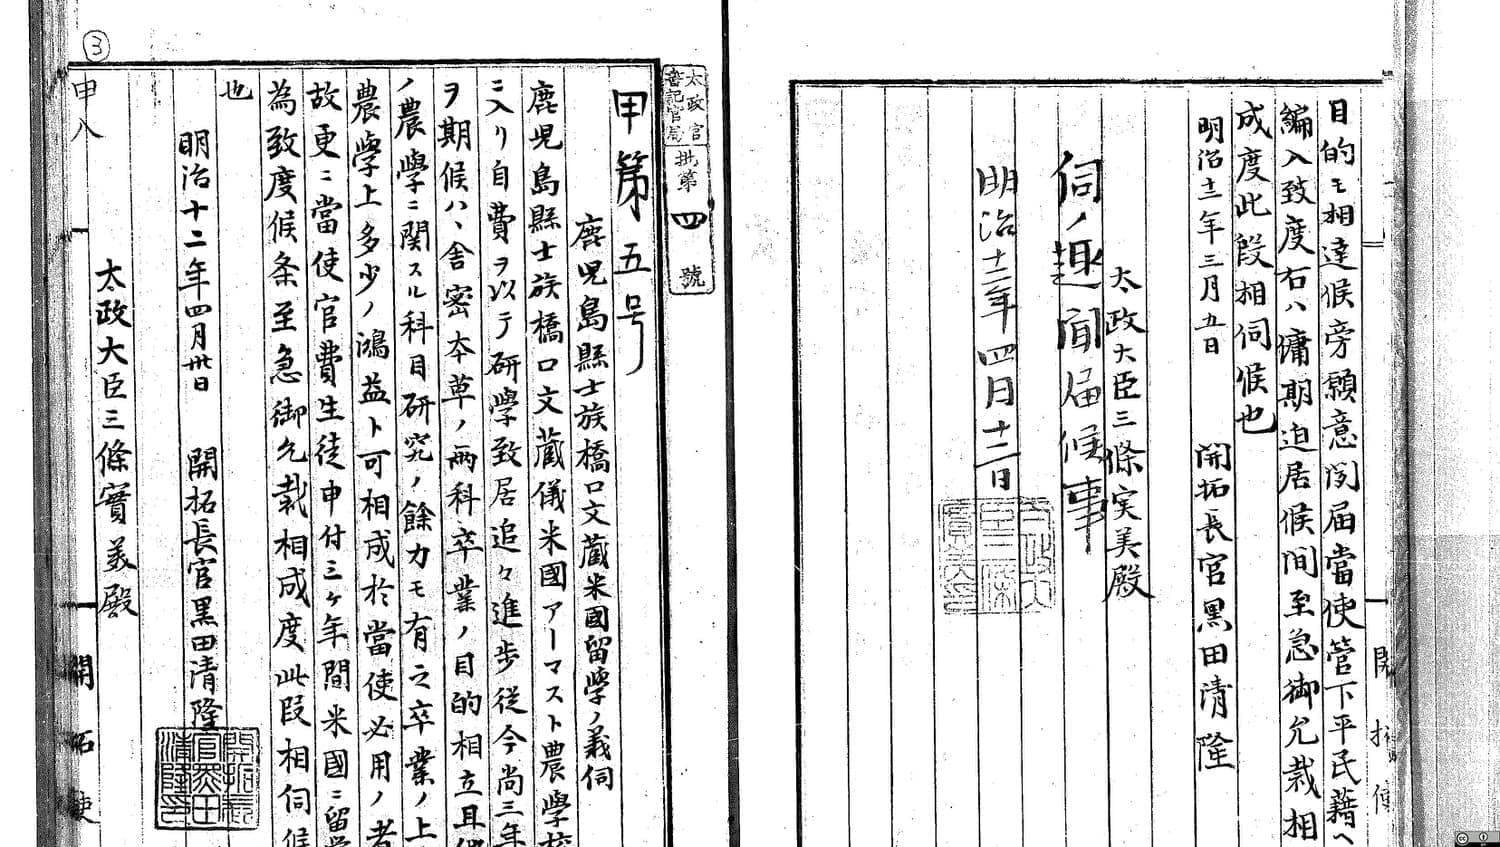 目的モ相達候旁願意聞届當使管下平民籍ヘ
編入致度右ハ傭期迫居候間至急御允裁相
成度此段相伺候也
明治十二年三月五日 開拓長官黒田清隆
太政大臣三條実美殿
伺ノ趣聞届候事
明治十二年四月十二日
開拓使
太政官
書記官局
批第四號
甲第五号
鹿児島縣士族橋口文蔵米國留学ノ義伺
鹿児島縣士族橋口文蔵儀米國アーマスト農学校
ニ入リ自費ヲ以テ研学致居追々進歩従今尚三年
ヲ期候ハヽ舎密本草ノ兩科卒業ノ目的相立且
ノ農學ニ関スル科目研究ノ餘力モ有之卒業ノ上
農學上多少ノ鴻益ト可相成於當使必用ノ者
故更ニ當使官費生徒申付三ヶ年間米國ニ留
為致度候条至急御允裁相成度此段相伺候
也
明治十二年四月卅日 開拓長官黒田清隆
太政大臣三條實美殿
甲八
開拓使
3